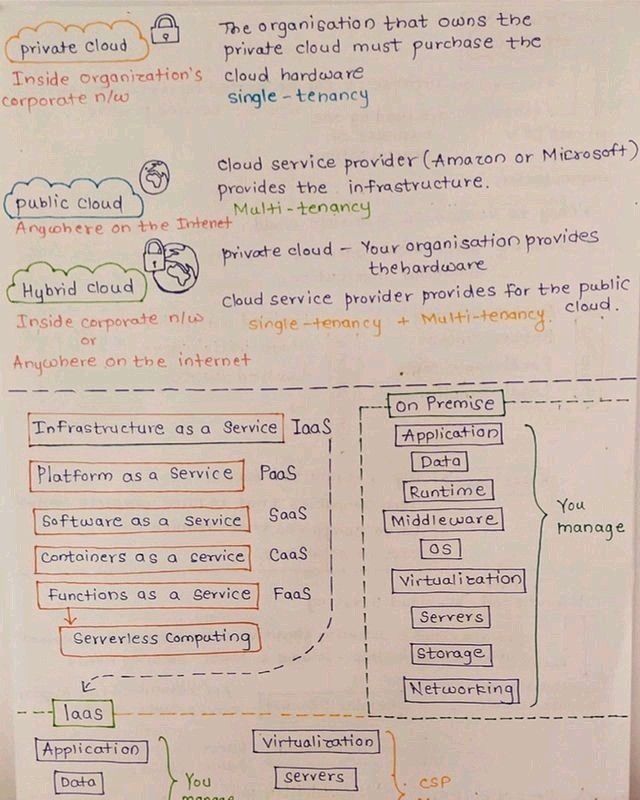 private cloud
Inside organization's
corporate n/w
The organisation that owns the
private cloud must purchase the
cloud hardware
single-tenancy
public cloud
Anywhere on the Intenet
cloud service provider (Amazon or Microsoft)
provides the infrastructure.
Multi-tenancy
Hybrid cloud
Inside corporate n/w
or
Anywhere on the internet
private cloud - Your organisation provides
the hardware
cloud service provider provides for the public
cloud.
single-tenancy + Multi-tenancy.
Infrastructure as a Service IaaS
Platform as a Service PaaS
Software as a Service SaaS
Containers as a service CaaS
Functions as a Service FaaS
Serverless Computing
On Premise
Application
Data
Runtime
Middleware
OS
Virtualization
Servers
Storage
Networking
You
manage
IaaS
Application
Data
You
Virtualization
Servers
CSP